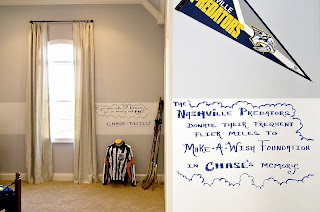 CHASE-TASTIC!
NASHVILLE
PREDATORS
THE
NASHVILLE PREDATORS
DONATE THEIR FREQUENT
FLIER MILES TO
MAKE-A-WISH FOUNDATION
IN CHASE'S MEMORY.